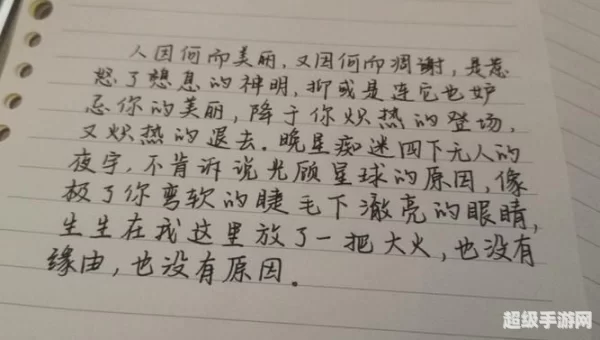 人因何而美丽，又因何而凋谢，是惹
怒了憩息的神明，抑或是连它也妒
忌你的美丽，降于你炽热的登场，
又炽热的退去。晚星痴迷四下无人的
夜宇，不肯诉说光顾星球的原因，像
极了你弯软的睫毛下澈亮的眼睛，
生生在我这里放了一把大火，也没有
缘由，也没有原因。
超级手游网